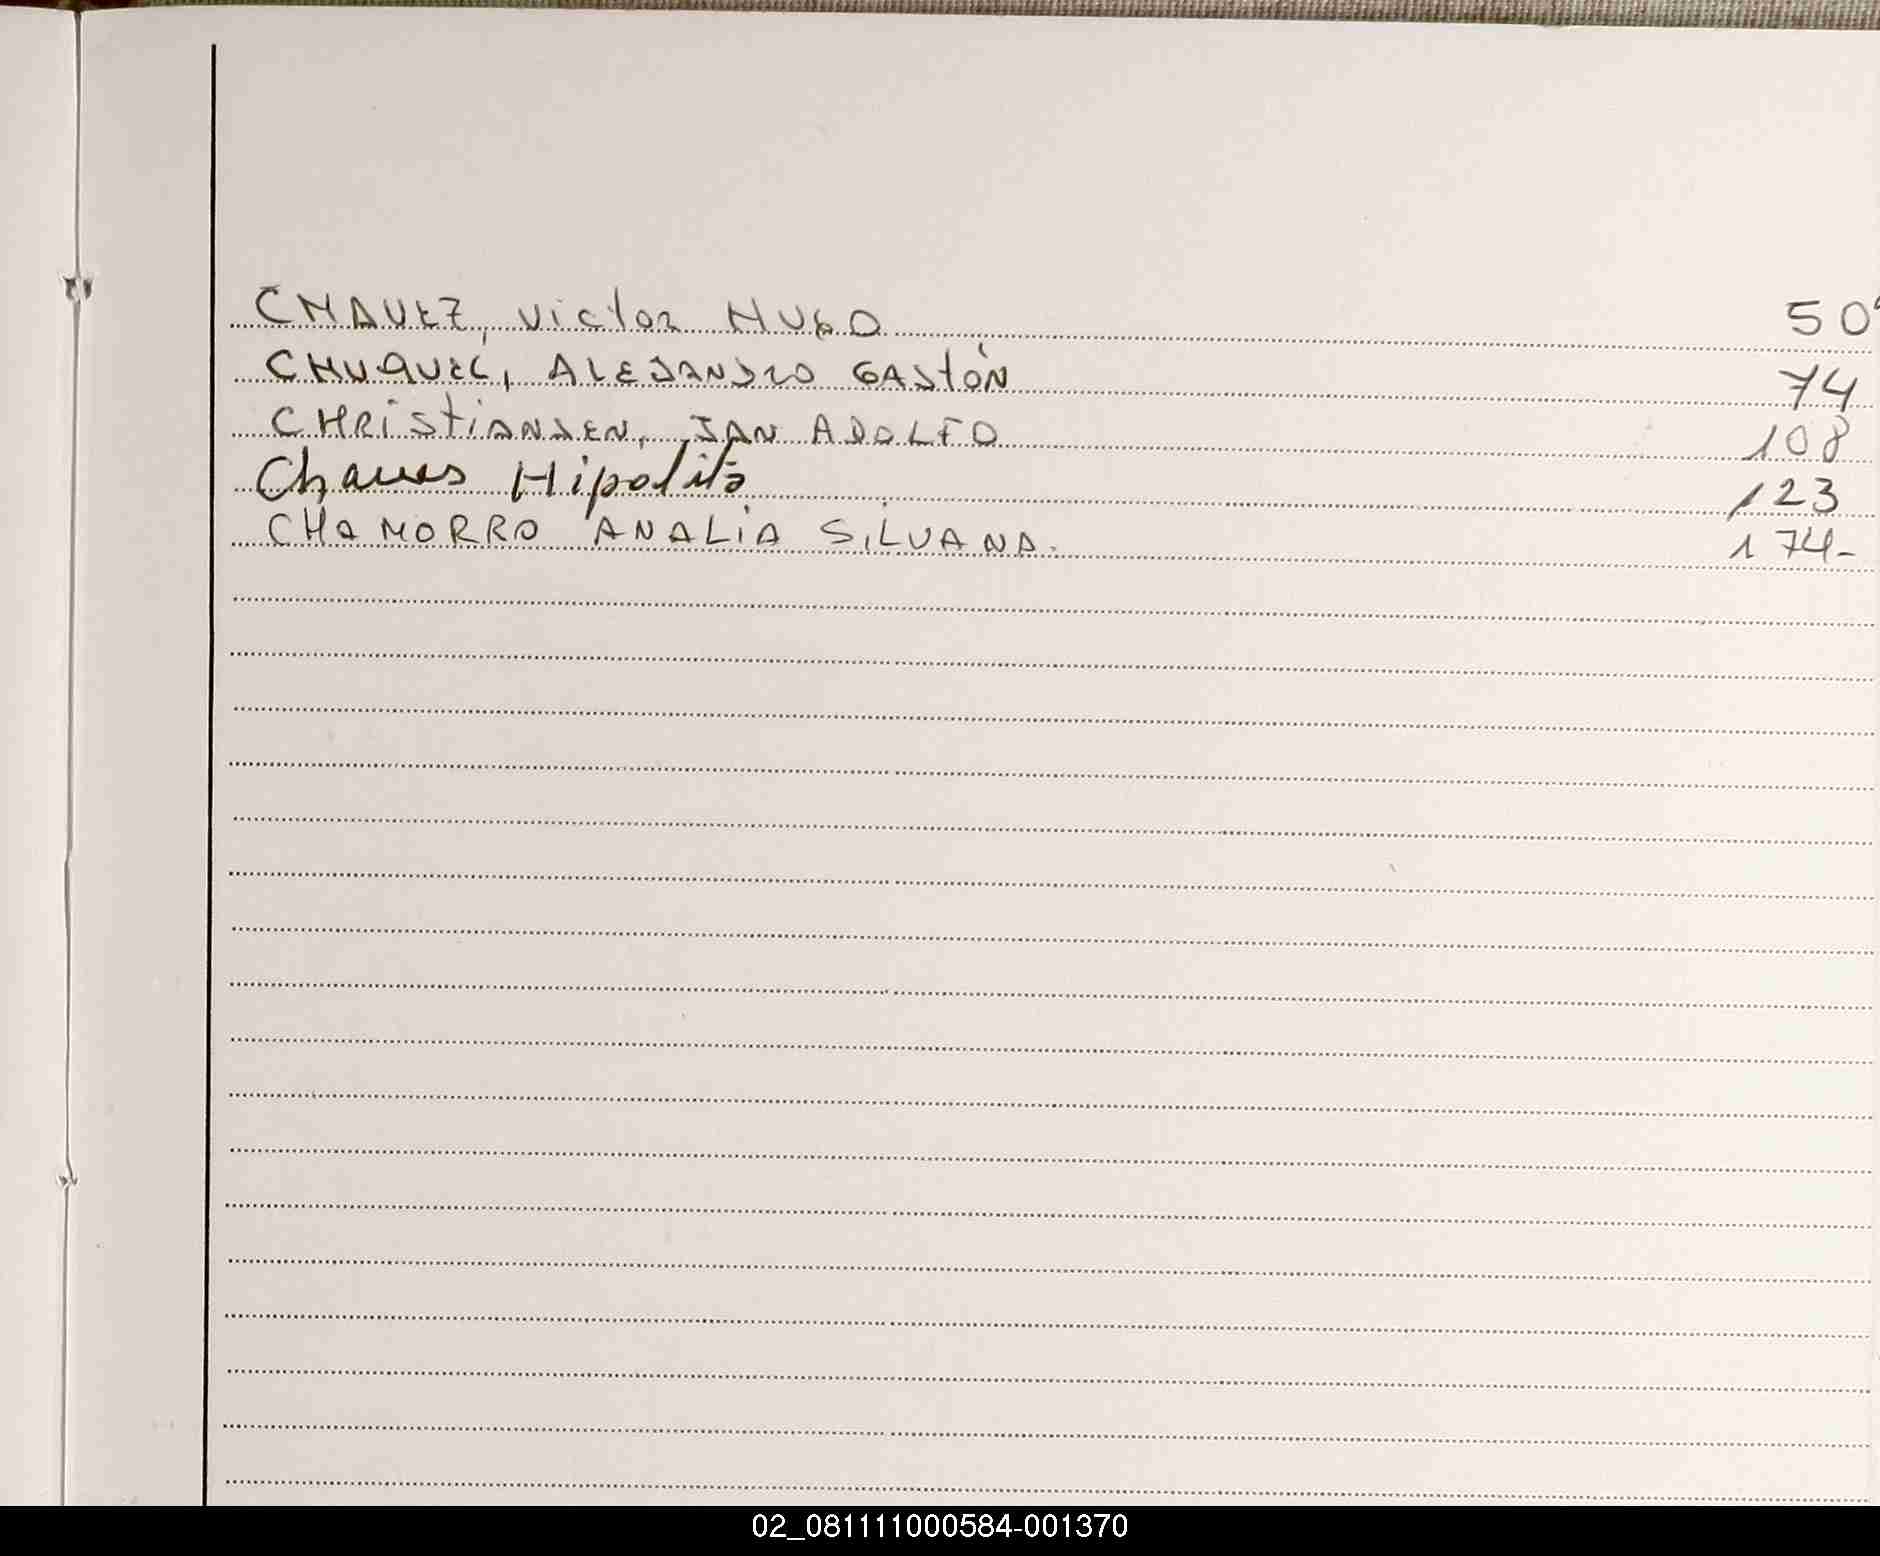 CHAVEZ, Victor HUGO 50
CHUQUEL, ALEJANDRO GASTÓN 74
CHRiStiANSEN, JAN ADOLFO 108
Chaves Hipolito 123
CHAMORRO ANALiA SiLVANA. 174-
02_081111000584-001370